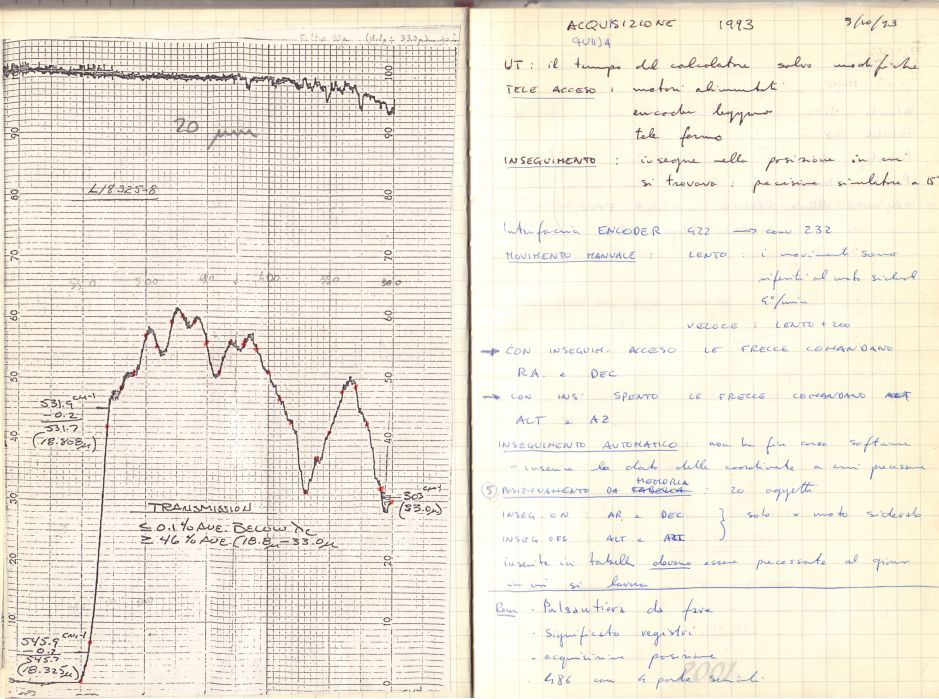 20 µm
L18325-8
100
90
80
70
60
50
40
30
20
10
0
550 500 450 400 350 300
531.9 cm-1
-0.2
531.7
(18.808µ)
303 cm-1
(33.0µ)
TRANSMISSION
≤ 0.1% AVE. BELOW λc
≥ 46% AVE (18.8µ-33.0µ
545.9 cm-1
-0.2
545.7
(18.325µ)
ACQUISIZIONE 1993
GUIDA
UT : il tempo del calcolatore salvo modifiche
TELE ACCESO : motori alimentati
encoder leggono
tele fermo
INSEGUIMENTO : insegue nella posizione in cui
si trovava : precisione simulatore a 15"
Interfaccia ENCODER 422 → conv 232
MOVIMENTO MANUALE : LENTO : i movimenti sono
riferiti al moto sideral
4°/min
VELOCE : LENTO + 200
→ CON INSEGUIM. ACCESO LE FRECCE COMANDANO
RA. e DEC
→ CON INS. SPENTO LE FRECCE COMANDANO
ALT e AZ
INSEGUIMENTO AUTOMATICO : non ha fine corsa software
- inserire la data delle coordinate a cui precessare
(5) POSIZIONAMENTO DA MEMORIA 20 oggetti
INSEG. ON : AR e DEC } solo x moto siderale
INSEG OFF : ALT e
inserite in tabella devono essere precessate al giorno
in cui si lavora
Rem - Pulsantiera da fare
- Significato registri
- acquisizione posizione
- 486 con 4 porte seriali
2001